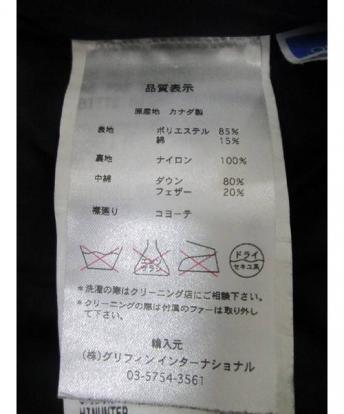 品質表示
原産地 カナダ製
表地 ポリエステル 85%
綿 15%
裏地 ナイロン 100%
中綿 ダウン 80%
フェザー 20%
襟廻り コヨーテ
エンソ サラシ
ドライ
セキユ系
*洗濯の際はクリーニング店にご相談下さい。
*クリーニングの際は付属のファーは取り外し
て下さい。
輸入元
(株)グリフィンインターナショナル
03-5754-3561